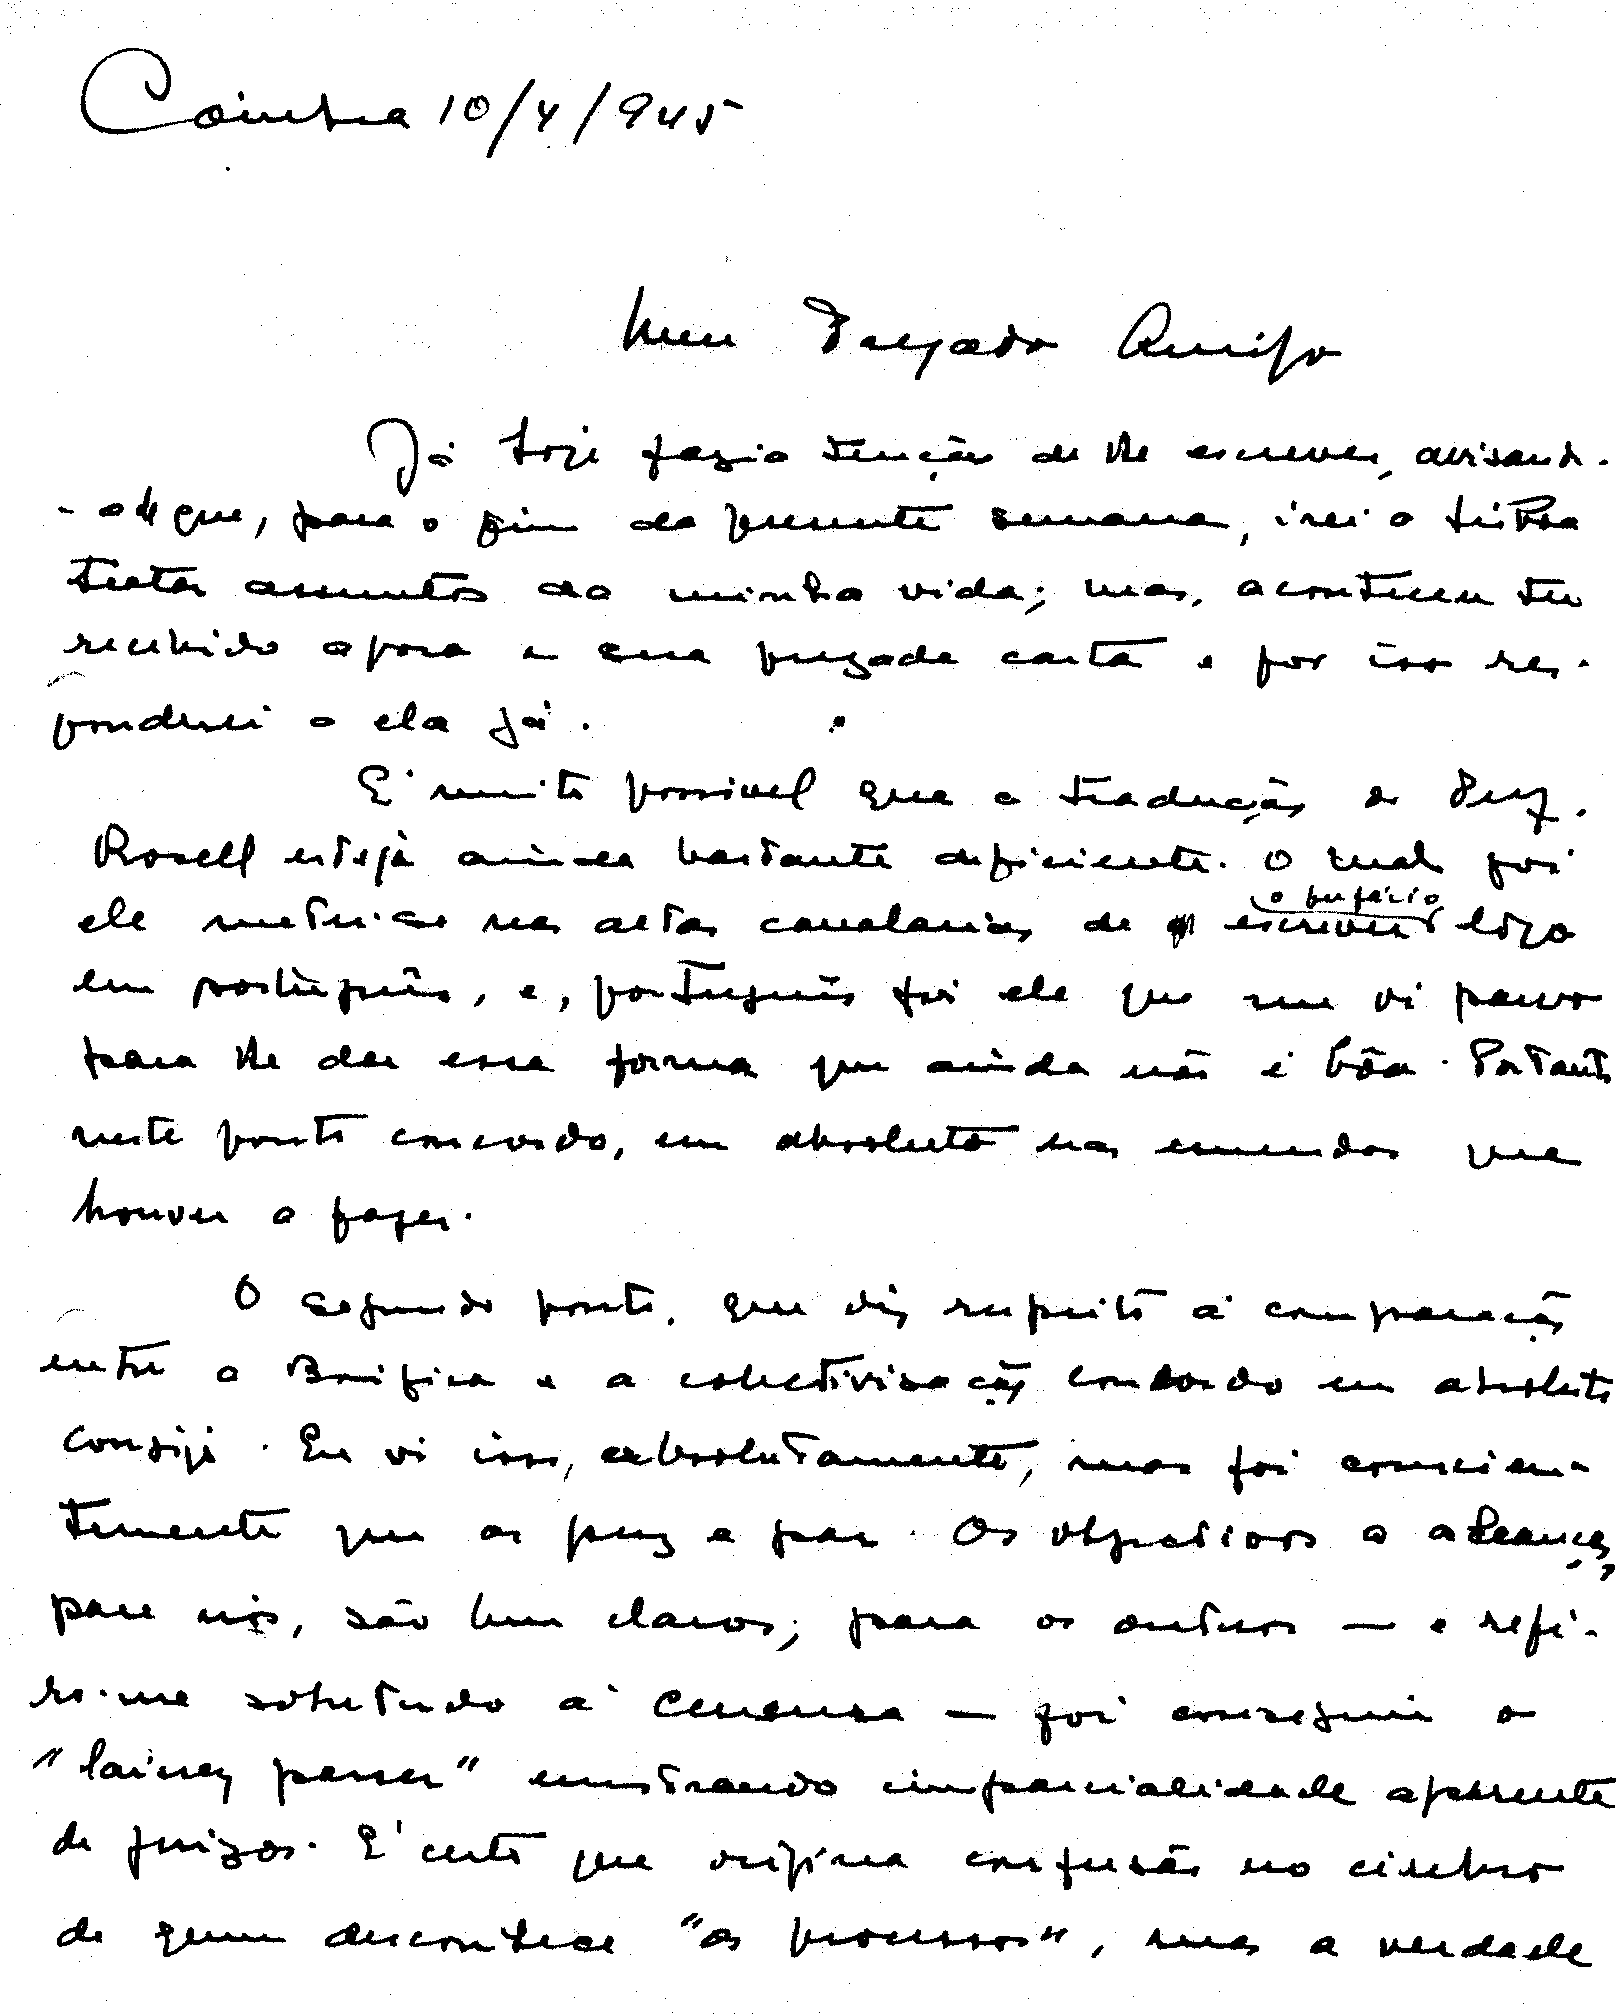 Coimbra 10/4/945
Meu Prezado Amigo
Já hoje fazia tenção de lhe escrever, avisando-
-o de que, para o fim da presente semana, irei a Lisboa
tratar assuntos da minha vida; mas, aconteceu ter
recebido agora a sua prezada carta e por isso res-
ponderei a ela já.
É muito possivel que a tradução do Eng.
Rosell esteja ainda bastante deficiente. O mal foi
ele meter-se nas altas cavalarias de escrever o prefácio logo
em português, e, português foi ele que me vi parvo
para lhe dar essa forma que ainda não é bôa. Portanto
neste ponto concordo, em absoluto nas emendas que
houver a fazer.
O segundo ponto, que diz respeito á comparação
entre a Bonifica e a colectivização concordo em absoluto
consigo. Eu vi isso, absolutamente, mas foi conscien-
temente que as puz a par. Os objectivos a alcançar,
para nós, são bem claros; para os outros — e refi-
ro-me sobretudo á Censura — foi conseguir o
"laissez passer" mostrando imparcialidade aparente
de juizos. É certo que origina confusão no cérebro
de quem desconhece "os processos", mas a verdade